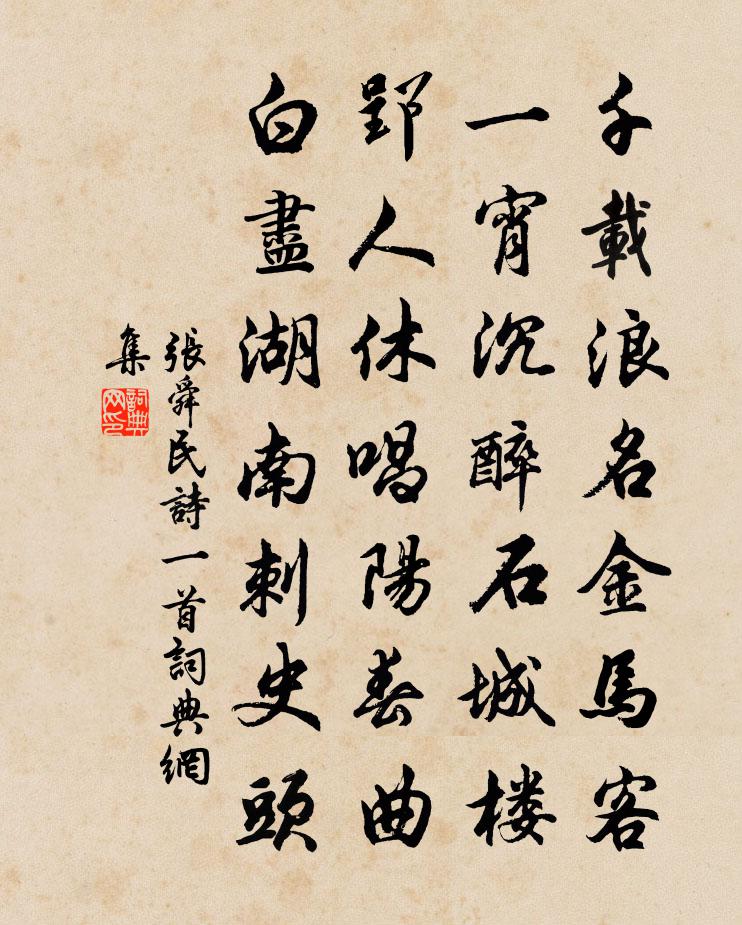 千載浪名金馬客
一宵沉醉石城楼
郢人休唱陽春曲
白盡湖南刺史頭
張舜民詩一首詞典網
集
詞典
网印